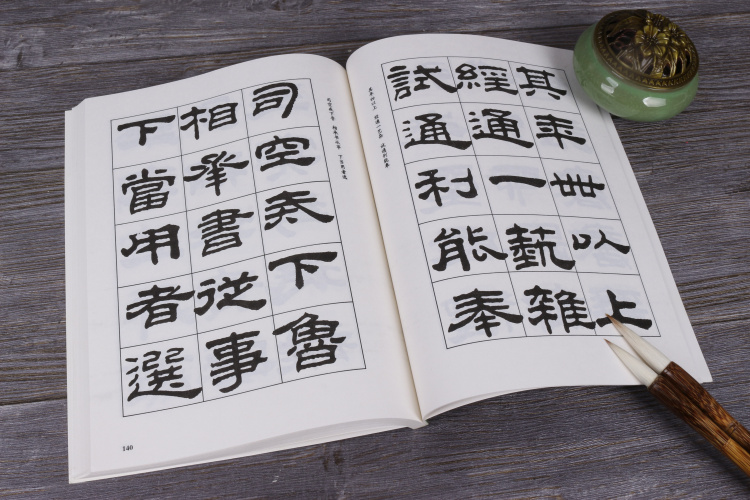 司空戒下魯
相承書從事
下當用者選
140
其年卌以上
經通一蓺雜
試通利能奉